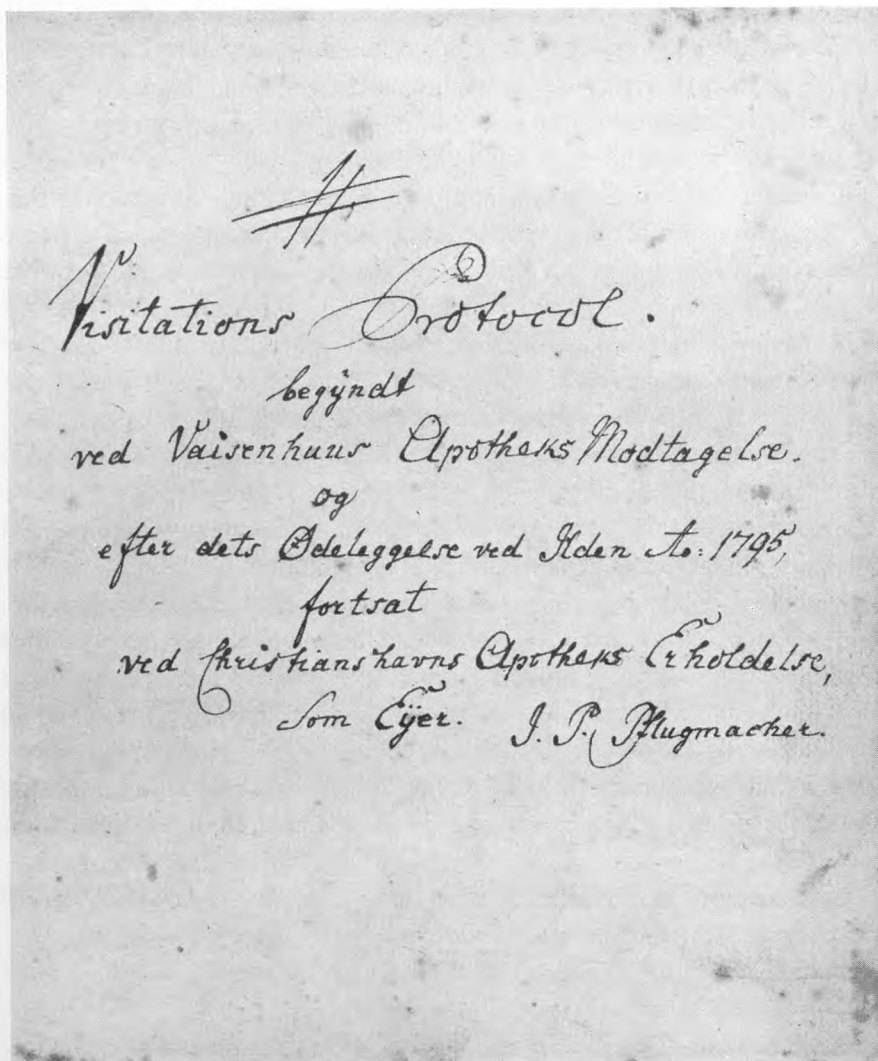 Visitations Protocol.
begÿndt
ved Vaisenhuus Apotheks Modtagelse.
og
efter dets Ødeleggelse ved Ilden Ao: 1795,
fortsat
ved Christianshavns Apotheks Erholdelse,
som Eÿer. J. P. Pflugmacher.